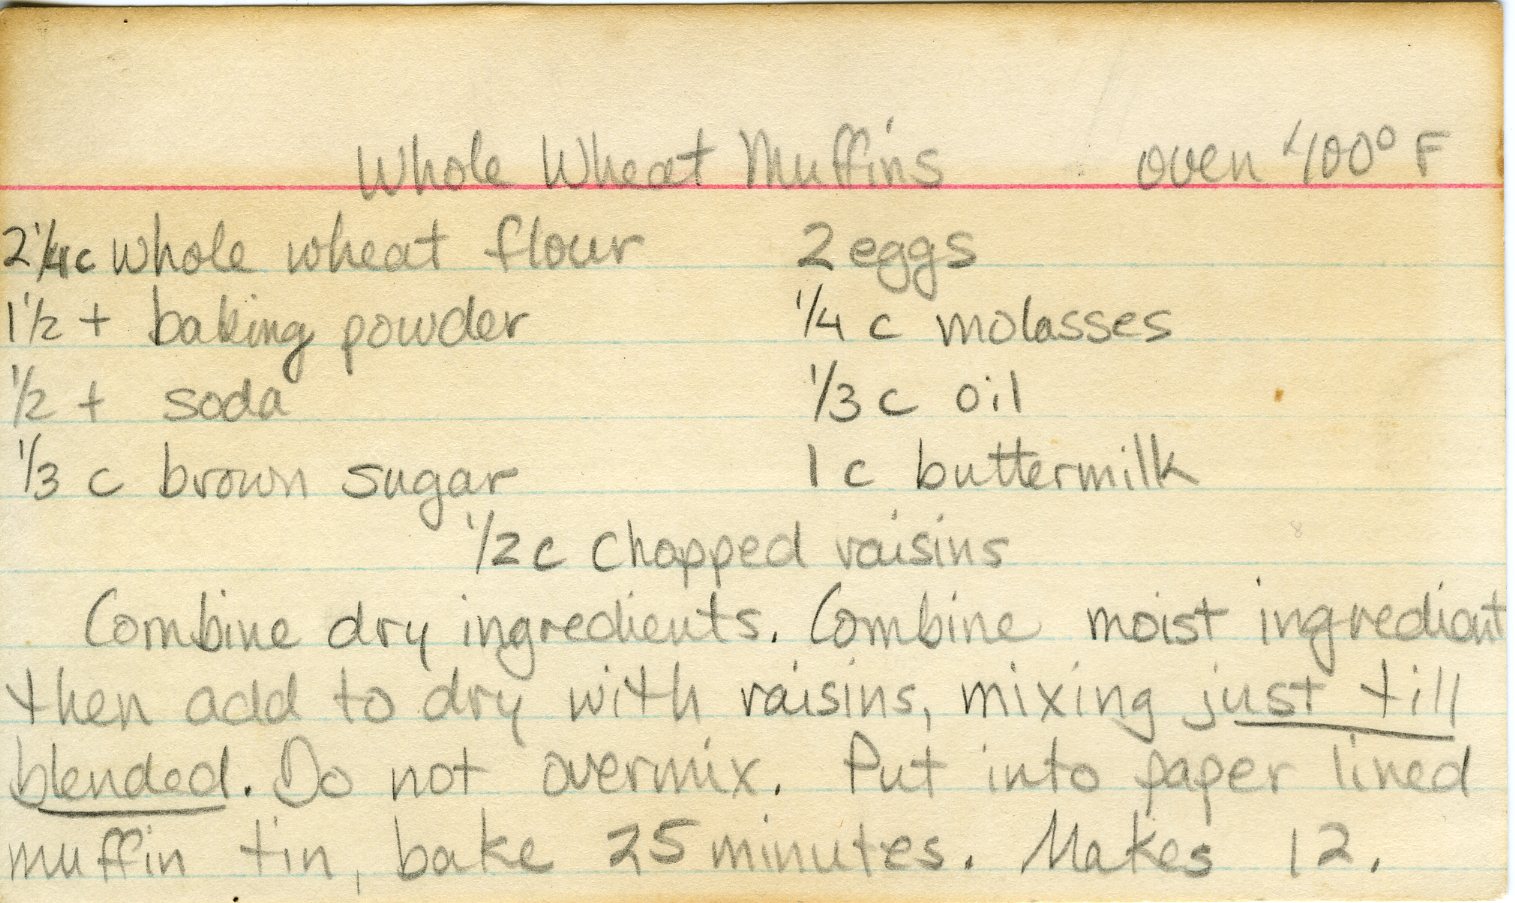 Whole Wheat Muffins oven 400° F
2 1/4 c whole wheat flour 2 eggs
1 1/2 t baking powder 1/4 c molasses
1/2 t soda 1/3 c oil
1/3 c brown sugar 1 c buttermilk
1/2 c chopped raisins
Combine dry ingredients. Combine moist ingredient
then add to dry with raisins, mixing just till
blended. Do not overmix. Put into paper lined
muffin tin, bake 25 minutes. Makes 12.